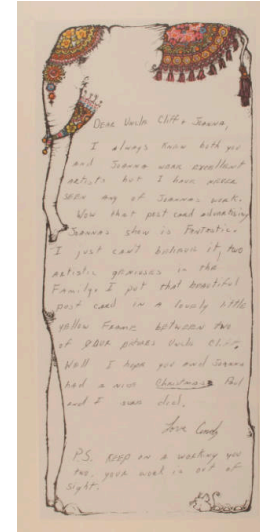 Dear Uncle Cliff + Joanna,
I always knew both you
and Joanna were excellent
artists but I have never
seen any of Joannas work.
Wow that post card advertising
Joannas show is Fantastic.
I just can't believe it, two
artistic geniuses in the
Family. I put that beautiful
post card in a lovely little
yellow Frame between two
of your Uncle Cliff.
Well I hope you and Joanna
had a nice Christmas Paul
and I sure did.
Love
P.S. Keep on a working you
two, your work is out of
sight.